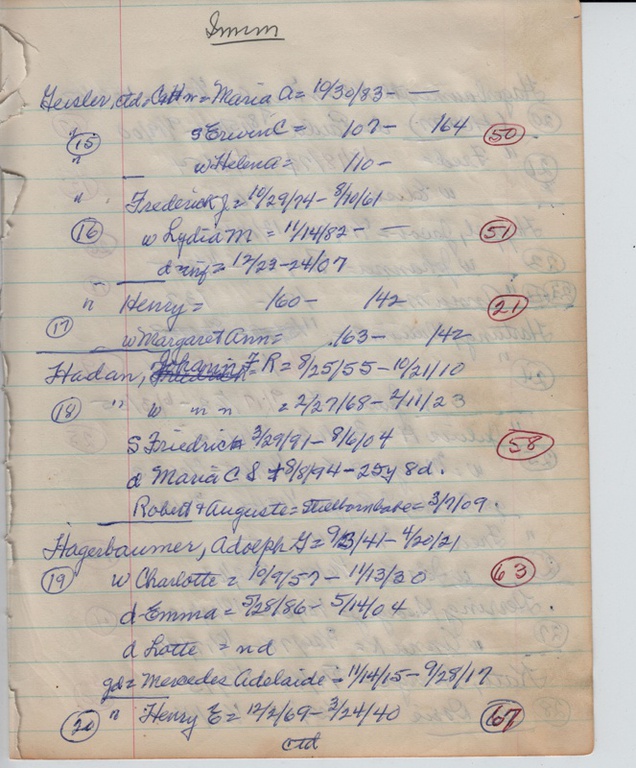 Imm
Geisler, ctd. = Maria A = 10/30/83 - —
" (15) s Erwin C = 107 - 164 (50)
" — w Helena = 110 -
" Frederick J = 10/29/74 - 8/10/61
(16) w Lydia M = 11/14/82 - — (51)
d = inf = 12/23-24/07
" Henry = 160 - 142 (21)
(17) w Margaret Ann = 163 - 142
Hadan, Johann F R = 8/25/55 - 10/21/10
(18) " w m n = 2/27/68 - 2/11/23
S Friedrich 3/29/91 - 8/6/04 (58)
d Maria C S + 8/8/94 - 25y 8d.
Robert + Auguste = = 3/7/09.
Hagerbaumer, Adolph G = 9/3/41 - 4/20/21
(19) w Charlotte = 10/9/57 - 11/13/30 (63)
d - Emma = 5/28/86 - 5/14/04
d Lotte = nd
gd = Mercedes Adelaide = 11/14/15 - 9/28/17
(20) " Henry E = 12/2/69 - 3/24/40 (67)
ctd